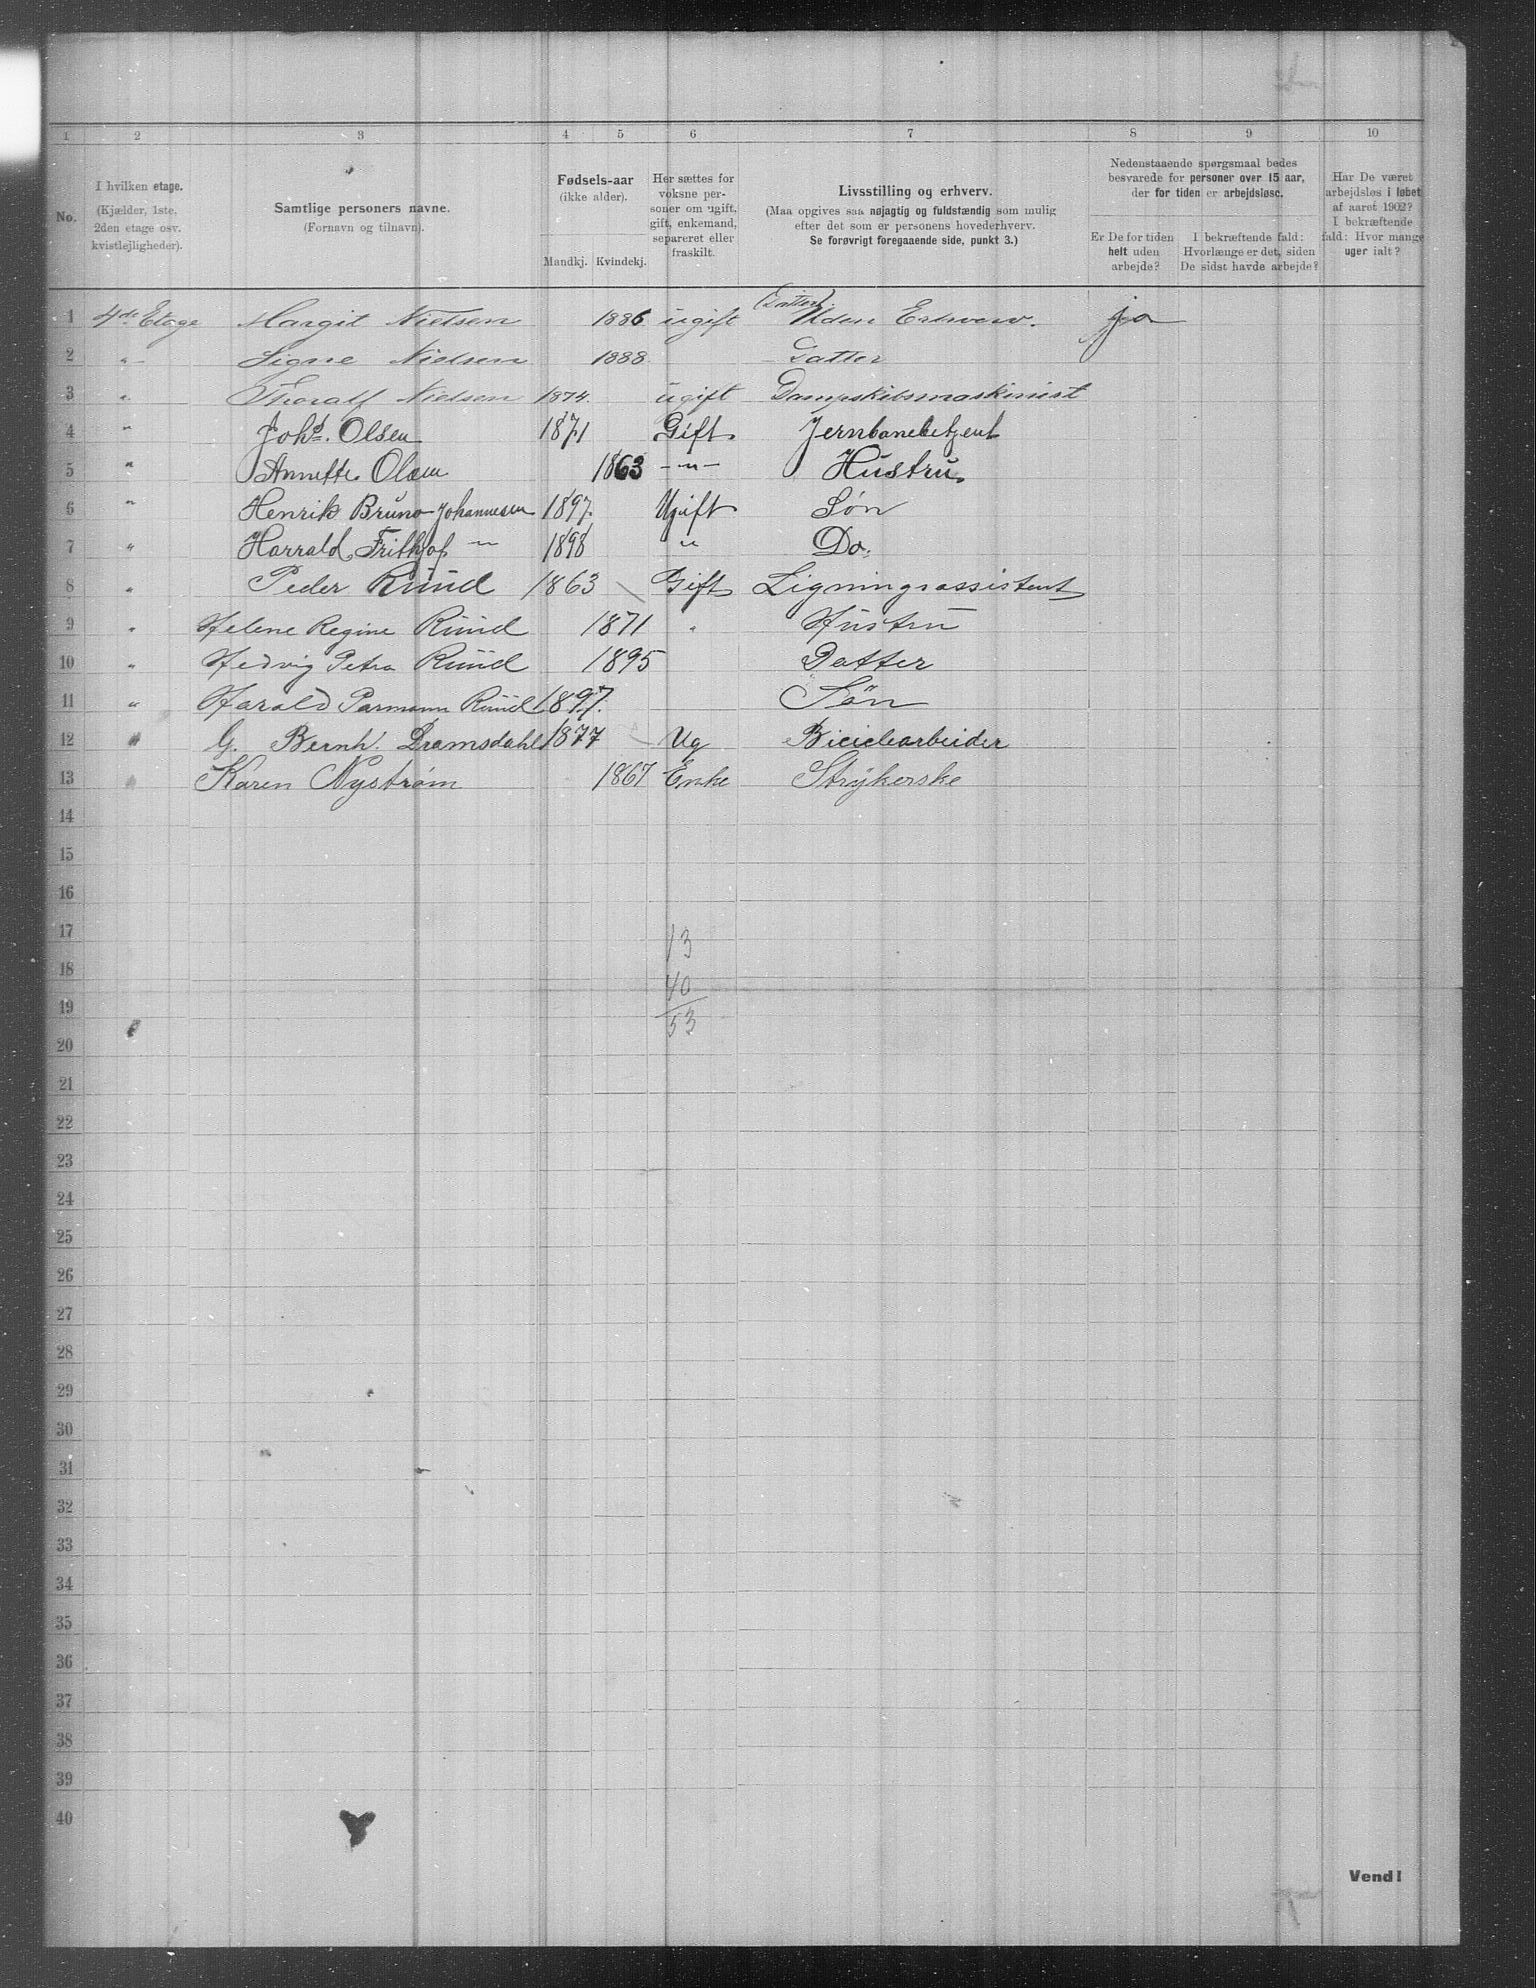 1 2 3 4 5 6 7 8 9 10
No.
I hvilken etage.
(Kjælder, 1ste,
2den etage osv.
kvistlejligheder).
Samtlige personers navne.
(Fornavn og tilnavn).
Fødsels-aar
(ikke alder).
Mandkj. Kvindekj.
Her sættes for
voksne per-
soner om ugift,
gift, enkemand,
separeret eller
fraskilt.
Livsstilling og erhverv.
(Maa opgives saa nøjagtig og fuldstændig som mulig
efter det som er personens hovederhverv.
Se forøvrigt foregaaende side, punkt 3.)
Nedenstaaende spørgsmaal bedes
besvarede for personer over 15 aar,
der for tiden er arbejdsløse.
Er De for tiden
helt uden
arbejde?
I bekræftende fald:
Hvorlænge er det, siden
De sidst havde arbejde?
Har De været
arbejdsløs i løbet
af aaret 1902?
I bekræftende
fald: Hvor mange
uger ialt?
1 4de Etage Margit Nielsen 1886 ugift (Datter) Uden Erhverv. ja
2 " Signe Nielsen 1888 Datter
3 " Thoralf Nielsen 1874. ugift Dampskibsmaskinist
4 " Johs. Olsen 1871 Gift Jernbanebetjent
5 " Annette Olsen 1863 -"- Hustru.
6 " Henrik Bruno Johannesen 1897. Ugift Søn
7 " Harrald Frithjof -"- 1898 " Do.
8 " Peder Ruud 1863 Gift Ligningsassistent
9 " Helene Regine Ruud 1871 " Hustru
10 " Hedvig Petra Ruud 1895 Datter
11 " Harald Parmann Ruud 1897. Søn
12 " G. Bernh. Dramsdahl 1877 Ug Biciclearbeider
13 " Karen Nystrøm 1867 Enke Strykerske
14
15
16
17 13
18 40
19 53
20
21
22
23
24
25
26
27
28
29
30
31
32
33
34
35
36
37
38
39
40
Vend!